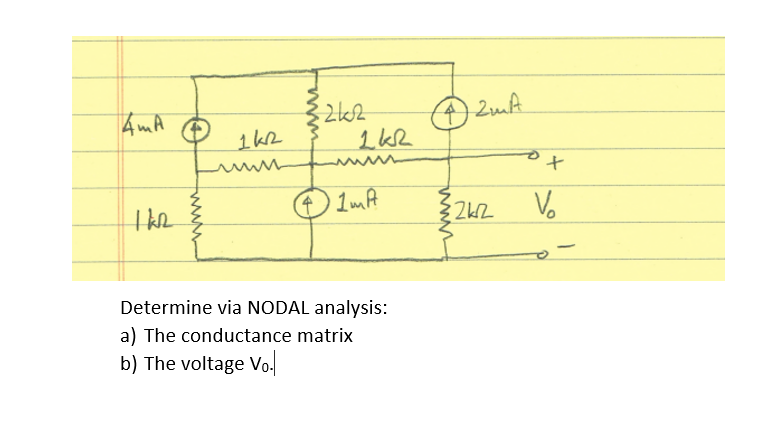 4mA
2kΩ
2mA
1kΩ
1kΩ
+
1mA
1kΩ
2kΩ
Vo
-
Determine via NODAL analysis:
a) The conductance matrix
b) The voltage V₀.